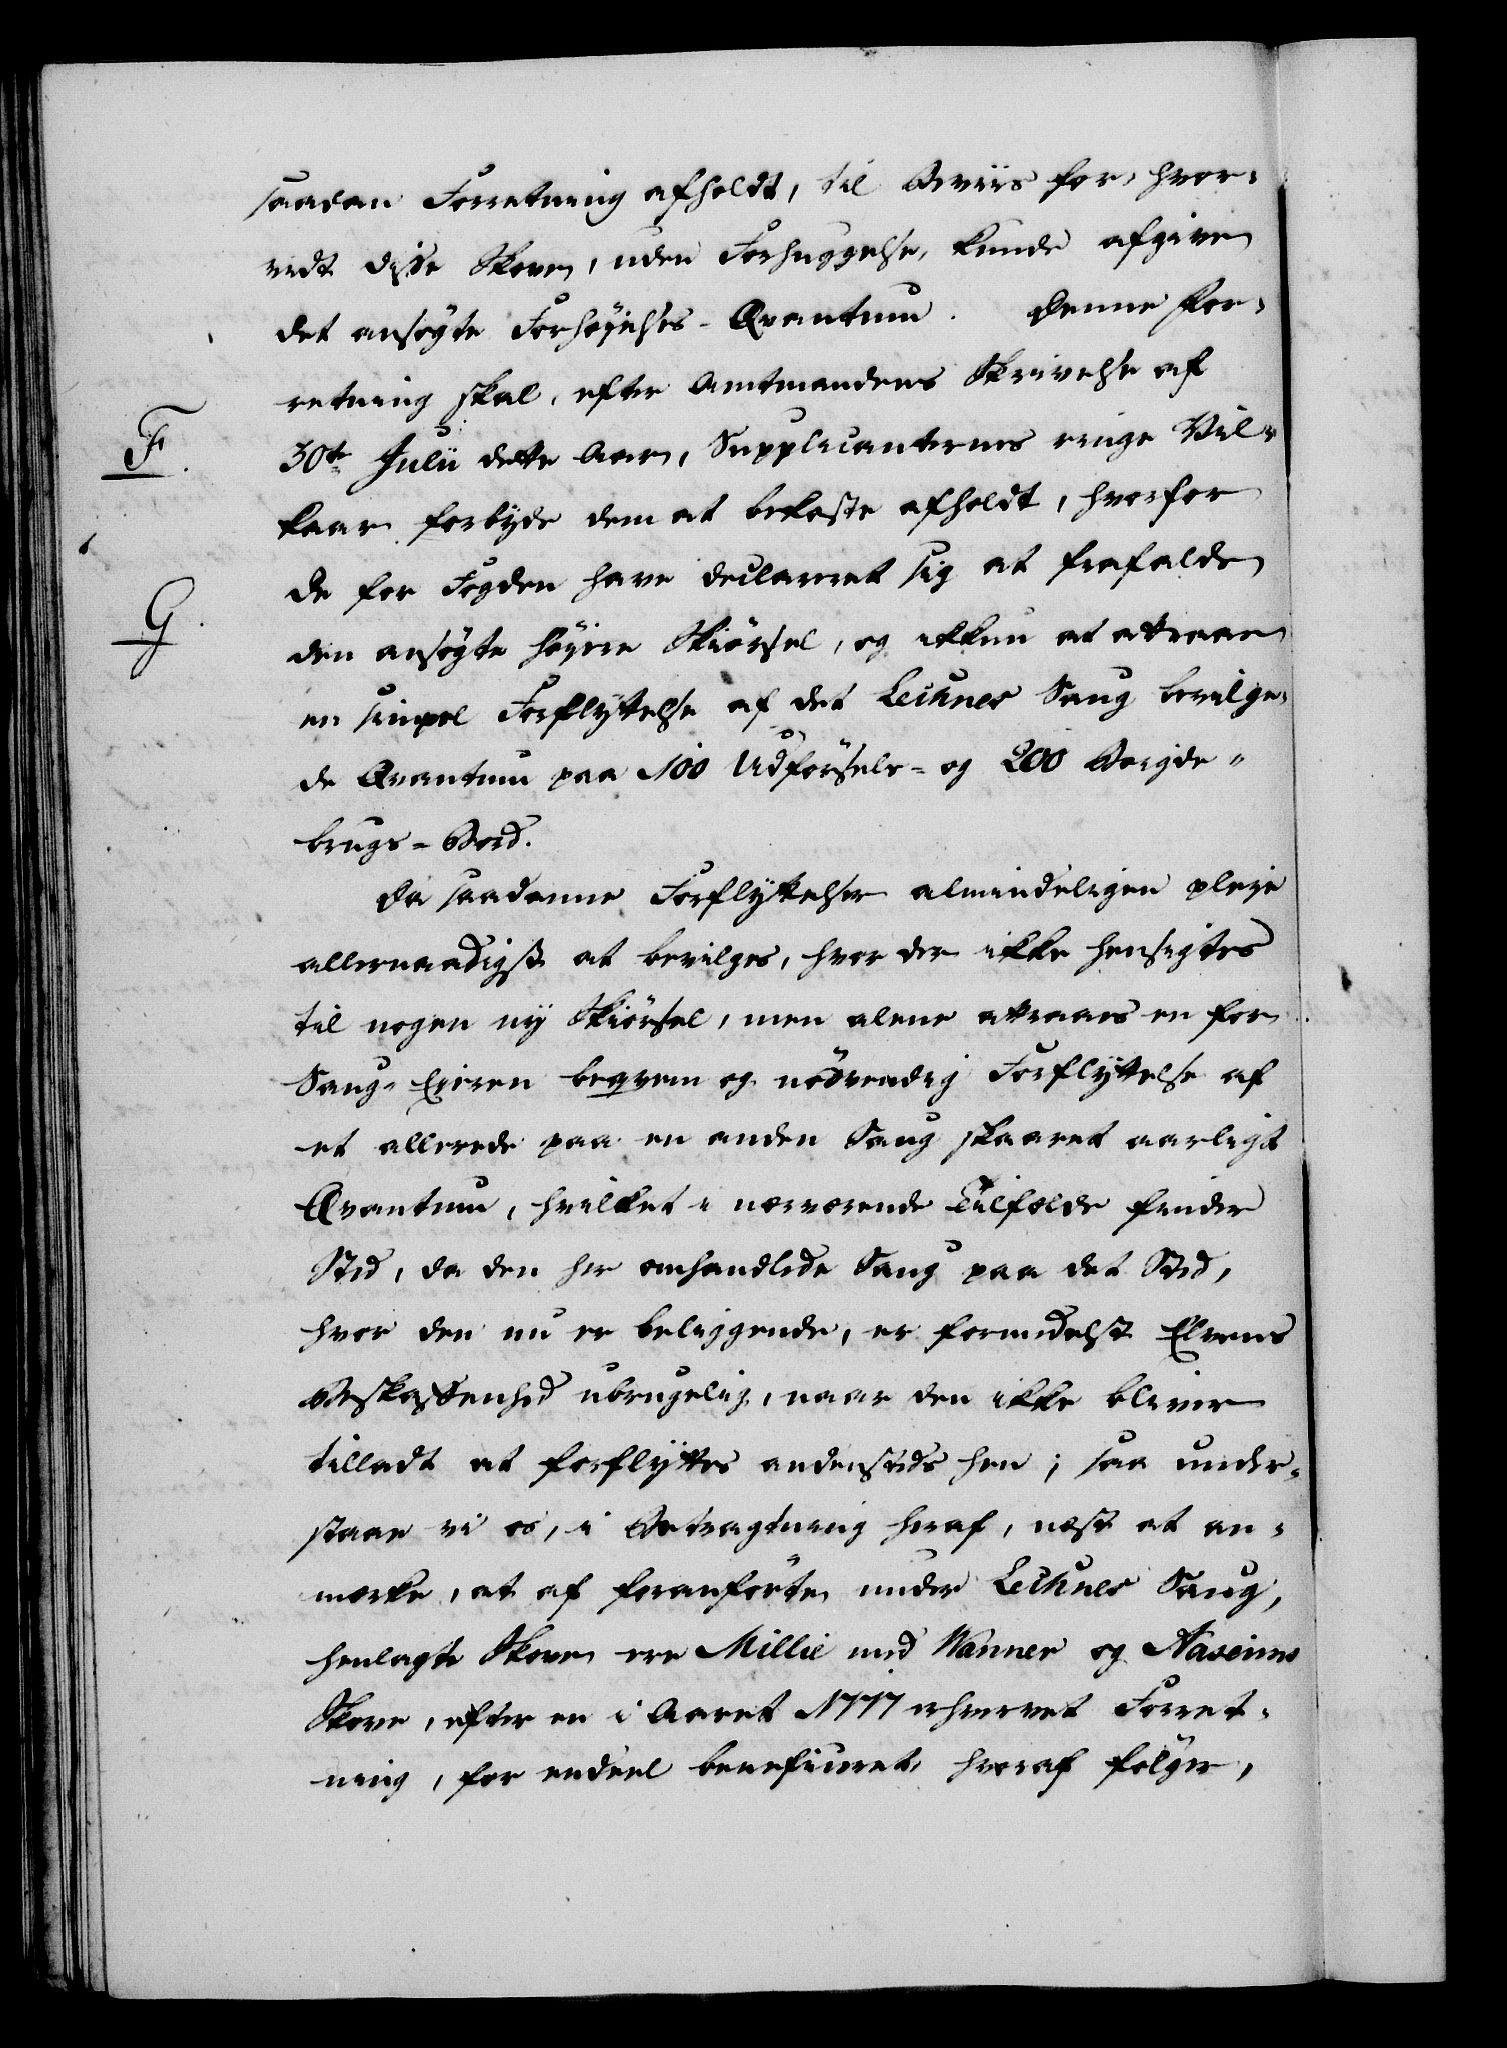 saadan Forretning afholdt, til Beviis for, hvor-
vidt disse Skove, uden Forhuggelse, kunde afgive
det ansøgte Forhøjelses-Qvantum. Denne For-
retning skal, efter Amtmandens Skrivelse af
F.
30te Julii dette Aar, Supplicanternes ringe Vil-
kaar forbyde dem at bekoste afholdt, hvorfor
G.
de for Fogden have declareret sig at frafalde
den ansøgte høyere Skiørsel, og ikkun at attraae
en simpel Forflyttelse af det Leiknes Saug bevilge-
de Qvantum paa 100 Udførsels- og 200 Bøigde-
brugs-Bord.
Da saadanne Forflyttelser almindeligen pleje
allernaadigst at bevilges, hvor der ikke hensigtes
til nogen ny Skiørsel, men alene attraaes en for
Saug-Eieren beqvem og nødvendig Forflyttelse af
et allerede paa en anden Saug skaaret aarligt
Qvantum, hvilket i nærværende Tilfælde finder
Sted, da den her omhandlede Saug paa det Sted,
hvor den nu er beliggende, er formedelst Elvens
Beskaffenhed ubrugelig, naar den ikke bliver
tilladt at forflyttes andensteds hen; saa under-
staae vi os, i Betragtning heraf, næst at an-
mærke, at af foranførte under Leiknes Saug,
henlagte Skove ere Millie med Wanner og Naseims
Skove, efter en i Aaret 1777 erhvervet Forret-
ning, for endeel beneficeret hvoraf følger,